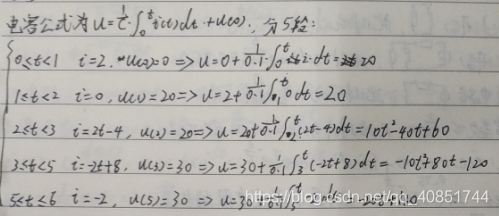 电容公式为 u=1/C∫₀ᵗ i(t)dt+u(0), 分5段:
0≤t<1 i=2, u(0)=0 => u=0+1/0.1∫₀ᵗ i·dt= 20
1≤t<2 i=0, u(1)=20=> u=2+1/0.1∫₁ᵗ0dt=20
2≤t<3 i=2t-4, u(2)=20=> u=20+1/0.1∫₂ᵗ(2t-4)dt=10t²-40t+60
3≤t<5 i=-2t+8, u(3)=30 => u=30+1/0.1∫₃ᵗ(-2t+8)dt=-10t²+80t-120
5≤t≤6 i=-2, u(5)=30 => u=30+
https://blog.csdn.net/qq_40851744